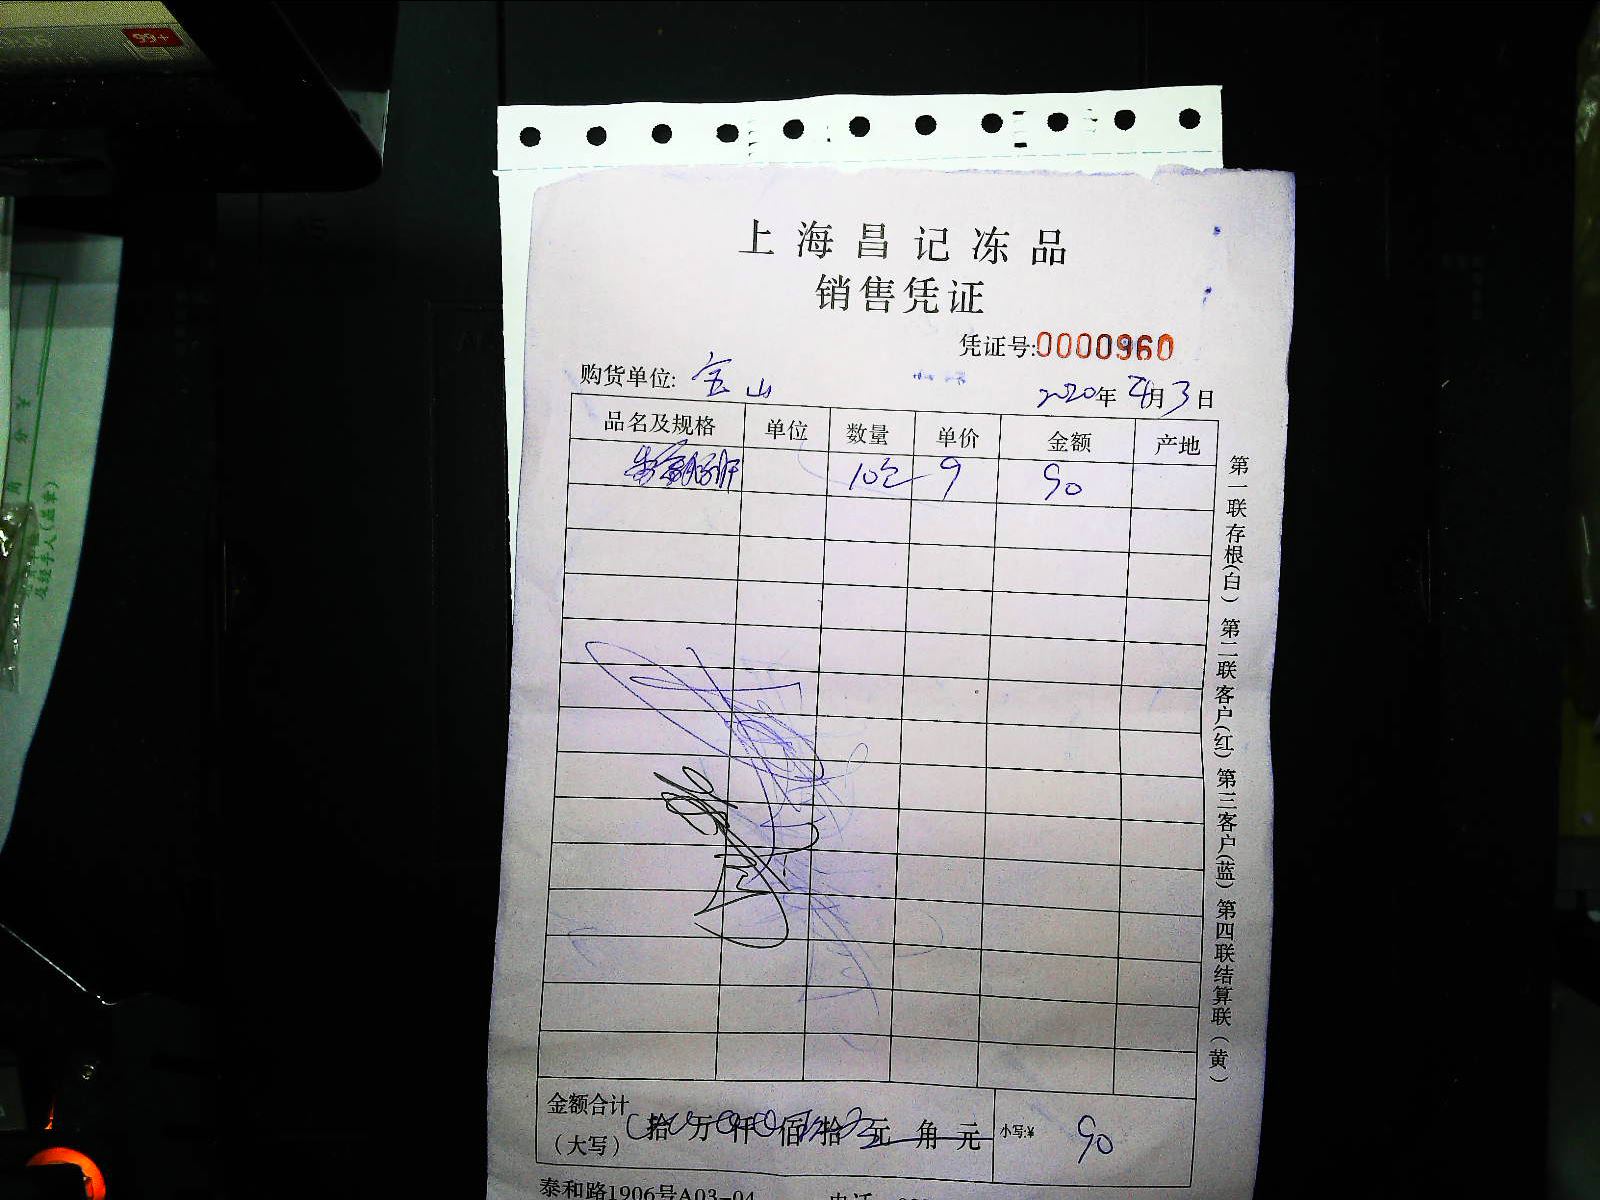 99+
上海昌记冻品
销售凭证
凭证号:0000960
购货单位: 宝山
2020年 4月 3日
品名及规格 单位 数量 单价 金额 产地
10包 9 90
第一联存根(白) 第二联客户(红) 第三客户(蓝) 第四联结算联(黄)
金额合计
(大写) 拾 万 仟 佰 拾 元 角 元 小写:¥ 90
泰和路1906号A03-04